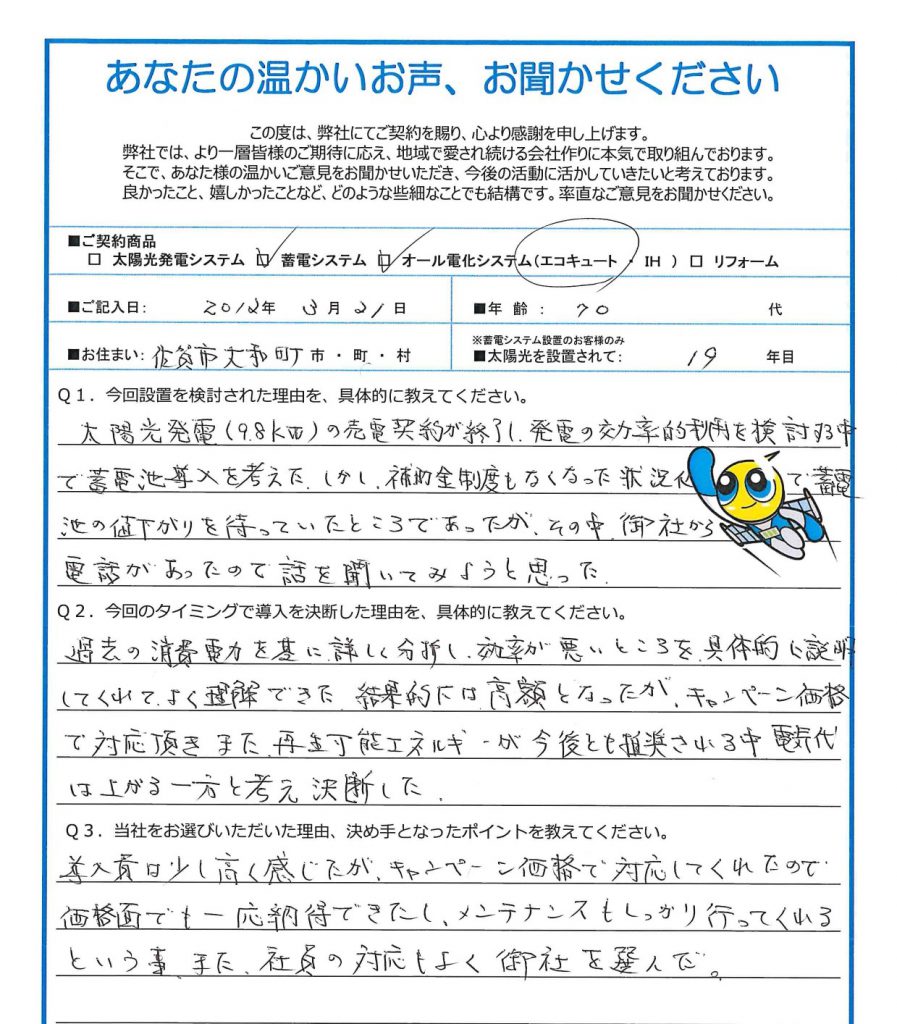 あなたの温かいお声、お聞かせください
この度は、弊社にてご契約を賜り、心より感謝を申し上げます。
弊社では、より一層皆様のご期待に応え、地域で愛され続ける会社作りに本気で取り組んでおります。
そこで、あなた様の温かいご意見をお聞かせいただき、今後の活動に活かしていきたいと考えております。
良かったこと、嬉しかったことなど、どのような些細なことでも結構です。率直なご意見をお聞かせください。
■ご契約商品
□ 太陽光発電システム ☑ 蓄電システム ☑ オール電化システム(エコキュート ・ IH ) □ リフォーム
■ご記入日: 2012年 3月21日 ■年 齢 : 70 代
※蓄電システム設置のお客様のみ
■お住まい: 佐賀市大和町 市・町・村 ■太陽光を設置されて: 19 年目
Q1. 今回設置を検討された理由を、具体的に教えてください。
太陽光発電(9.8kW)の売電契約が終了し、発電の効率的利用を検討する中
で蓄電池導入を考えた。しかし、補助金制度もなくなった状況 で蓄電
池の値下がりを待っていたところであったが、その中、御社から
電話があったので話を聞いてみようと思った。
Q2. 今回のタイミングで導入を決断した理由を、具体的に教えてください。
過去の消費電力を基に詳しく分析し、効率が悪いところを具体的に説明
してくれて、よく理解できた。結果的には高額となったが、キャンペーン価格
で対応頂き、また、再生可能エネルギーが今後とも推奨される中、電気代
は上がる一方と考え決断した。
Q3. 当社をお選びいただいた理由、決め手となったポイントを教えてください。
導入費は少し高く感じたが、キャンペーン価格で対応してくれたので
価格面でも一応納得できたし、メンテナンスもしっかり行ってくれる
という事、また、社員の対応もよく御社を選んだ。